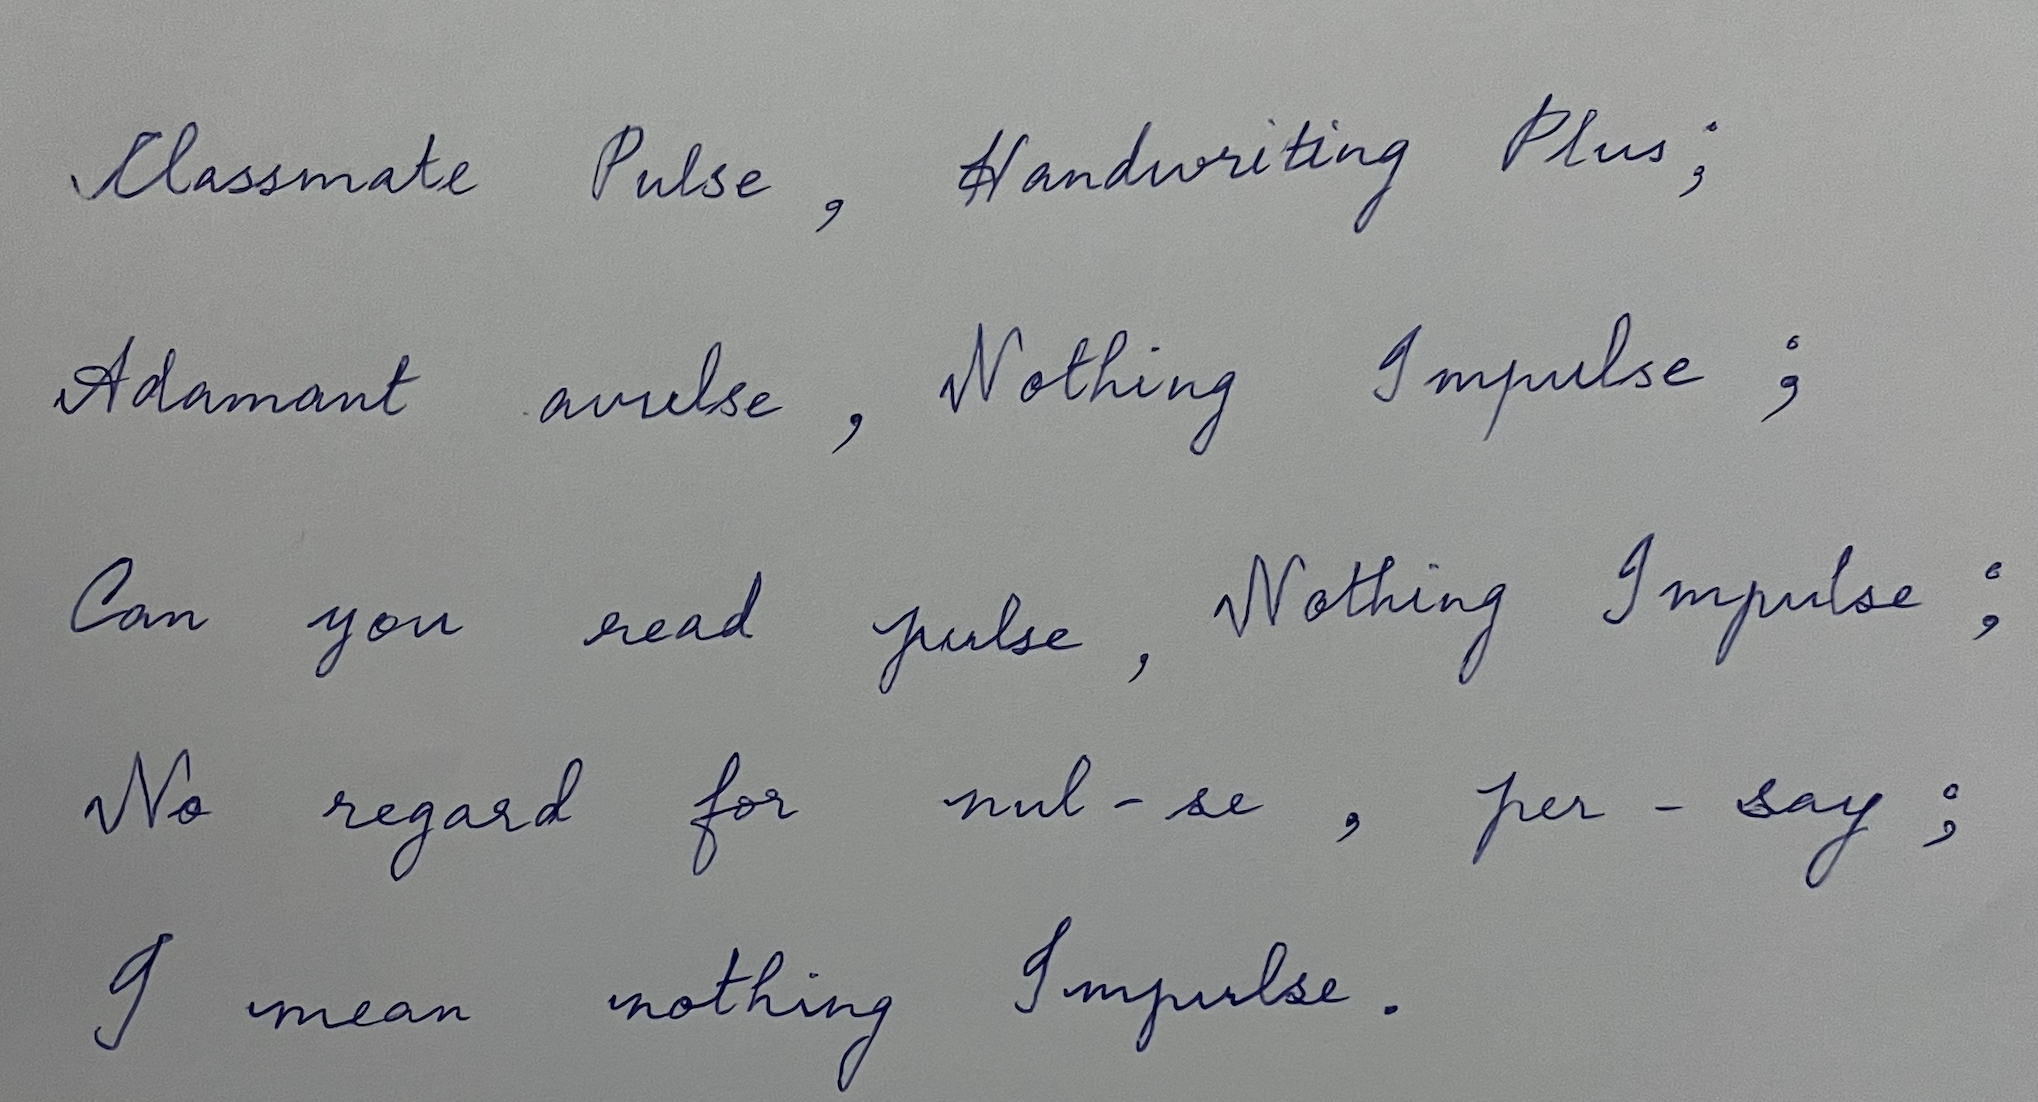 Classmate Pulse, Handwriting Plus;
Adamant avulse, Nothing Impulse;
Can you read pulse, Nothing Impulse;
No regard for nul-se, per-say;
I mean nothing Impulse.